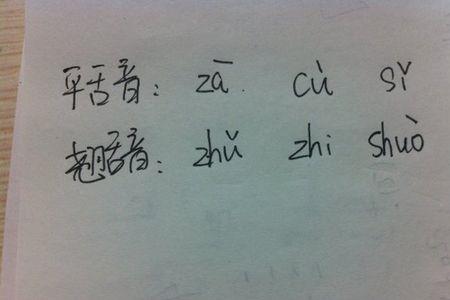 平舌音：zā cù sǐ
翘舌音：zhǔ zhi shuò